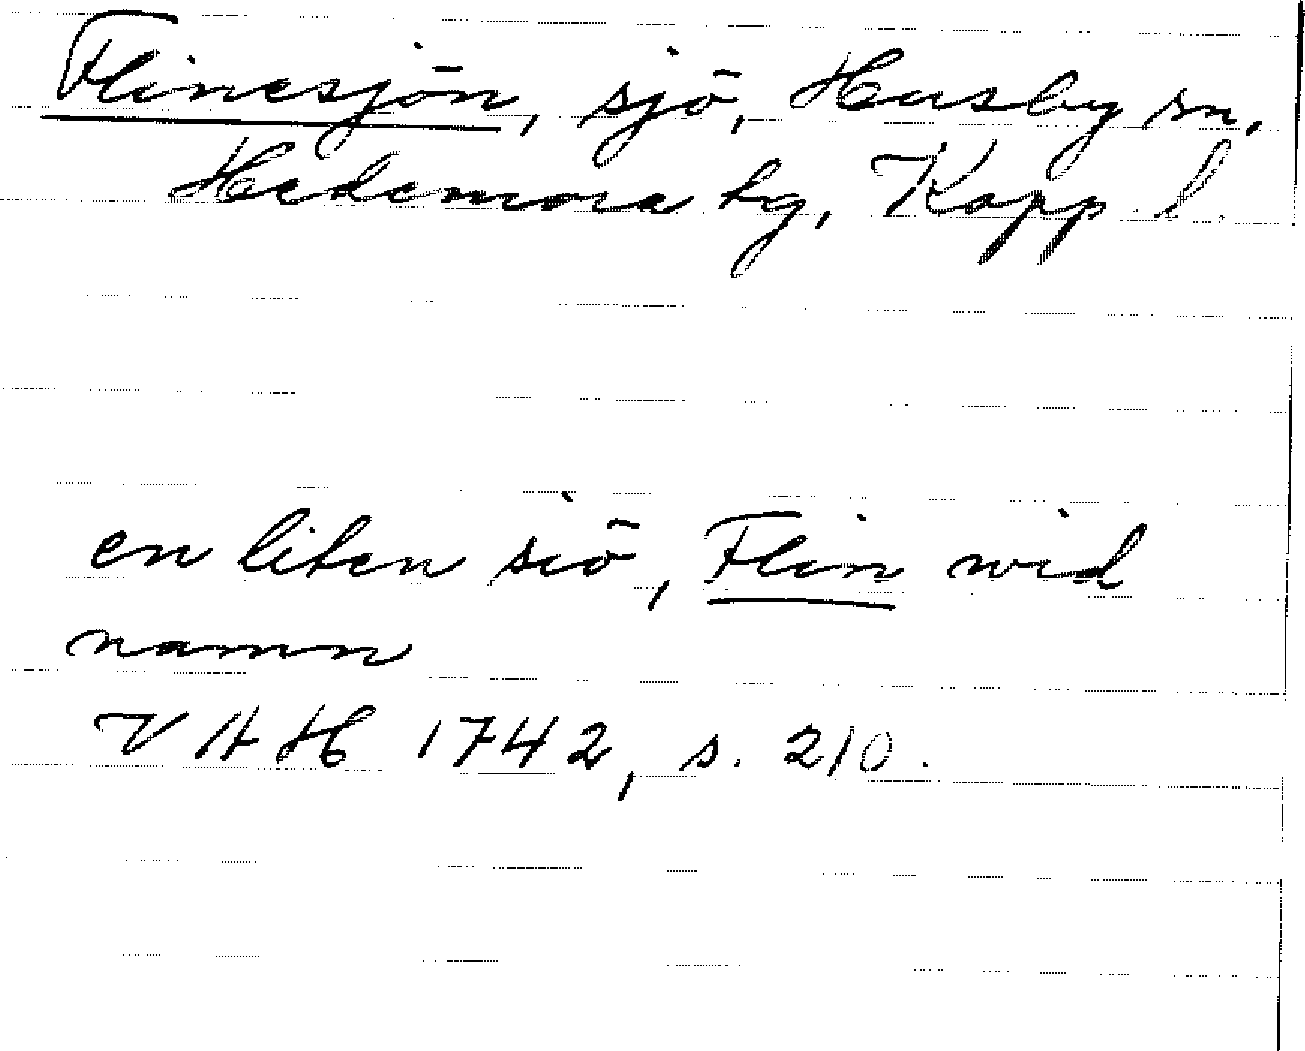 Flinesjön, sjö, Husby sn,
Hedemora tg, Kopp. l.
en liten siö, Flin wid
namn
VAH 1742, s. 210.